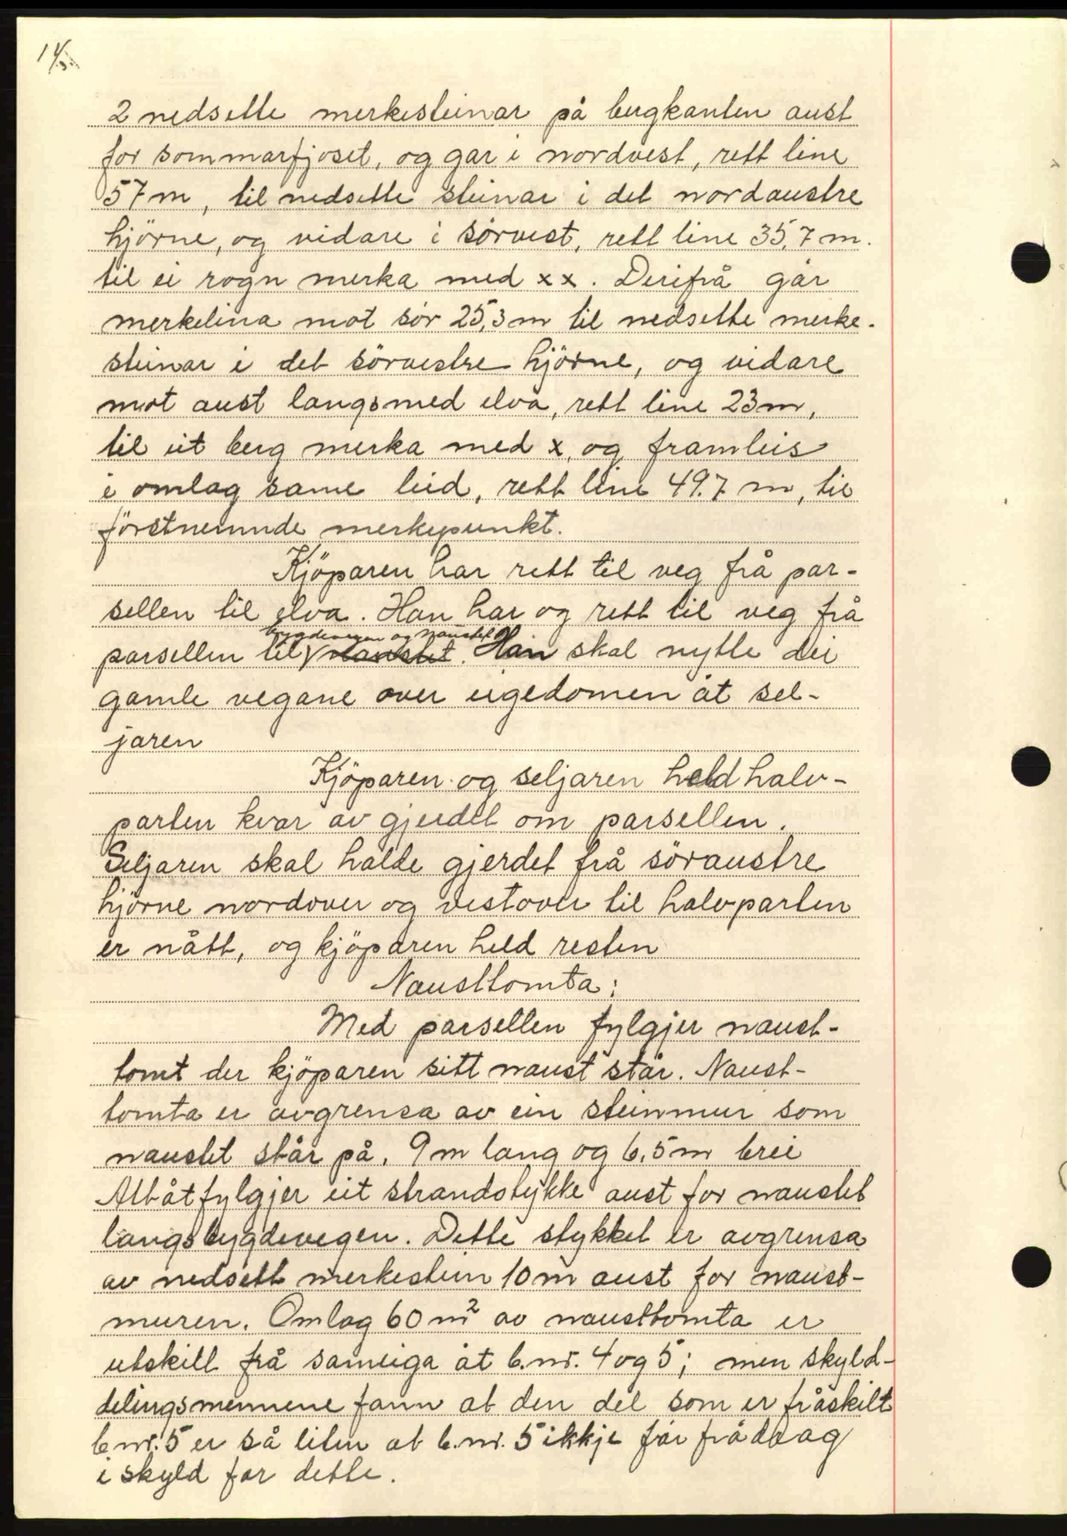 2 nedsette merkesteinar på bergkanten aust
for sommarfjoset, og går i nordvest, rett line
57 m, til nedsette steinar i det nordaustre
hjörne, og vidare i sörvest, rett line 35,7 m.
til ei rogn merka med xx. Derifrå går
merkelina mot sör 25,3 m til nedsette merke-
steinar i det sörvestre hjörne, og vidare
mot aust langsmed elva, rett line 23 m,
til eit berg merka med x, og framleis
i omlag same leid, rett line 49.7 m, til
förstnemnde merkepunkt.
Kjöparen har rett til veg frå par-
sellen til elva. Han har og rett til veg frå
bygdevegen og naustet
parsellen til naustet. Han skal nytte dei
gamle vegane over eigedomen åt sel-
jaren
Kjöparen og seljaren held halv-
parten kvar av gjerdet om parsellen.
Seljaren skal halde gjerdet frå söraustre
hjörne nordover og vestover til halvparten
er nått, og kjöparen held resten
Nausttomta:
Med parsellen fylgjer naust-
tomt der kjöparen sitt naust står. Naust-
tomta er avgrensa av ein steinmur som
naustet står på, 9 m lang og 6,5 m brei
Attåt fylgjer eit strandstykke aust for naustet
langs bygdevegen. Dette stykket er avgrensa
av nedsett merkestein 10 m aust for naust-
muren. Omlag 60 m² av nausttomta er
utskilt frå sameiga åt b.nr. 4 og 5; men skyld-
delingsmennene fann at den del som er fråskilt
b.nr. 5 er så liten at b.nr. 5 ikkje får frådrag
i skyld for dette.